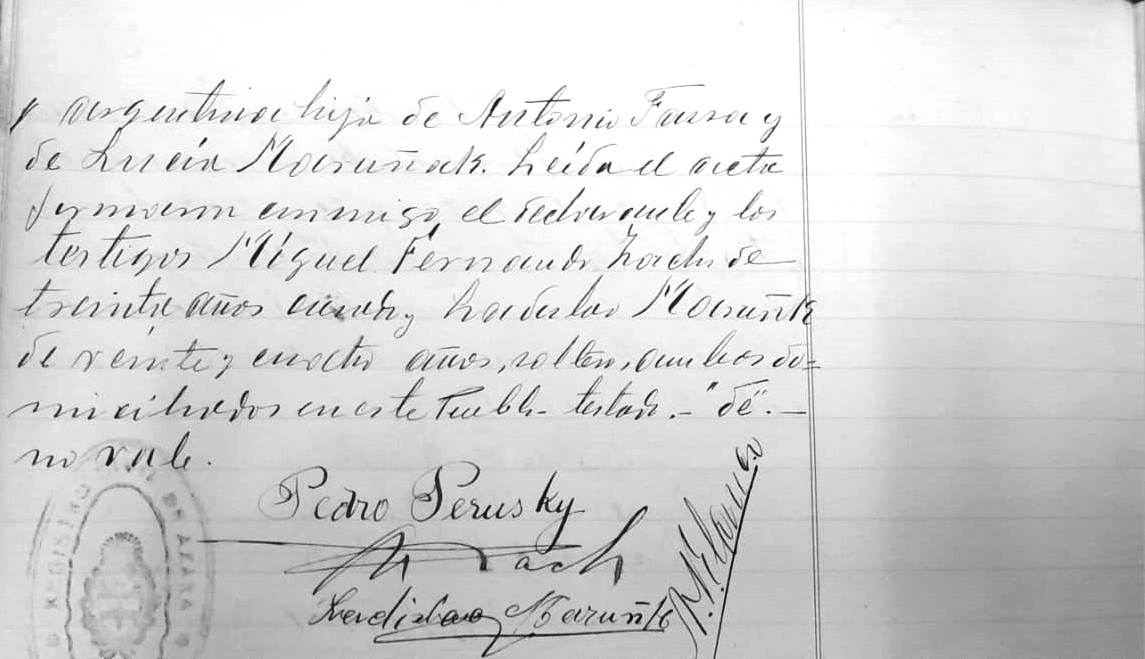 y argentina hija de Antonio Farra y
de Lucía Maruñak. Leída el acta
firmaron conmigo, el declarante y los
testigos Miguel Fernando Zach, de
treinta años casado, y Ladislao Maruñk
de veinte y cuatro años, soltero, ambos do=
miciliados en este Pueblo - testado. - "de". -
no vale.
Pedro Perusky
Zach
Ladislao Maruñk
REGISTRO DE AZARA